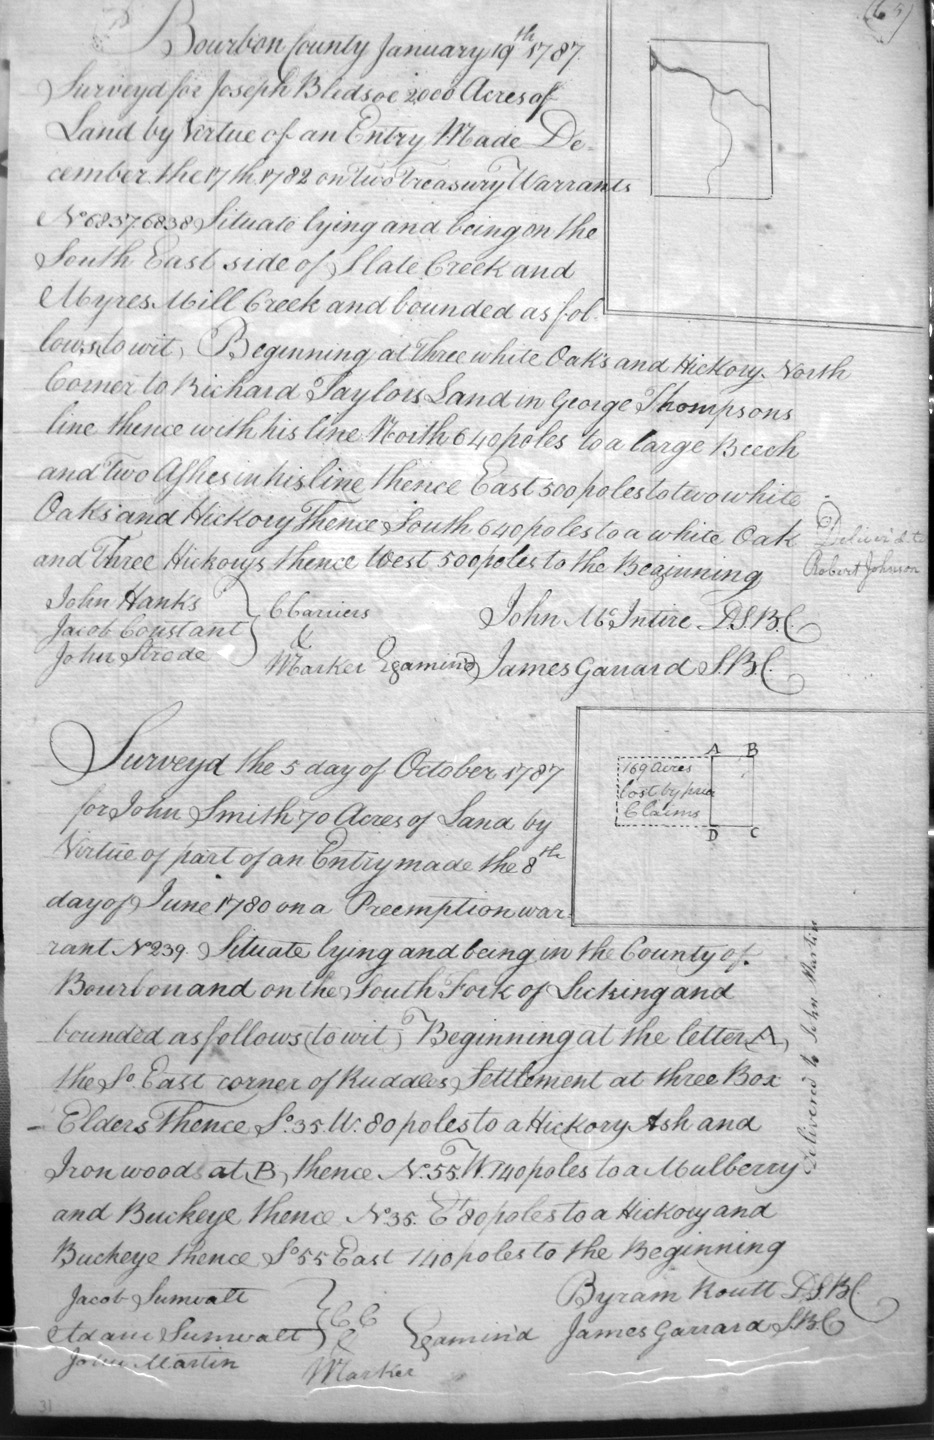 (65)
Bourbon County January 19th 1787.
Surveyd for Joseph Bledsoe 2000 Acres of
Land by Virtue of an Entry Made De-
cember the 17th 1782 on two Treasury Warrants
No 6837 6838 Situate lying and being on the
South East side of Slate Creek and
Myres Mill Creek and bounded as fol-
lows, to wit, Beginning at three white Oaks and Hickory North
Corner to Richard Taylors Land in George Thompsons
line thence with his line North 640 poles to a large Beech
and Two Ashes in his line thence East 500 poles to two white
Oaks and Hickory Thence South 640 poles to a white Oak
and Three Hickorys thence West 500 poles to the Beginning
Deliver'd to
Robert Johnson
John Hanks
Jacob Constant
John Strode
CCarriers
&
Marker
John McIntire D.S.B.C
Examin'd James Garrard S.B.C.
Surveyd the 5 day of October 1787
for John Smith 70 Acres of Land by
Virtue of part of an Entry made the 8th
day of June 1780 on a Preemption war-
rant No 239. Situate lying and being in the County of
Bourbon and on the South Fork of Licking and
bounded as follows (to wit) Beginning at the letter A,
the So. East corner of Ruddles Settlement at three Box
Elders Thence So. 35 W. 80 poles to a Hickory Ash and
Ironwoods at B, thence N. 55. W. 140 poles to a Mulberry
and Buckeye thence No 35. Et 80 poles to a Hickory and
Buckeye thence So 55 East 140 poles to the Beginning
A B
169 Acres
lost by prior
Claims
D C
Delivered to John Martin
Jacob Sumwalt
Adam Sumwalt
John Martin
CC
&
Marker
Byram Routt D.S.B.C
Examin'd James Garrard S.B.C
31